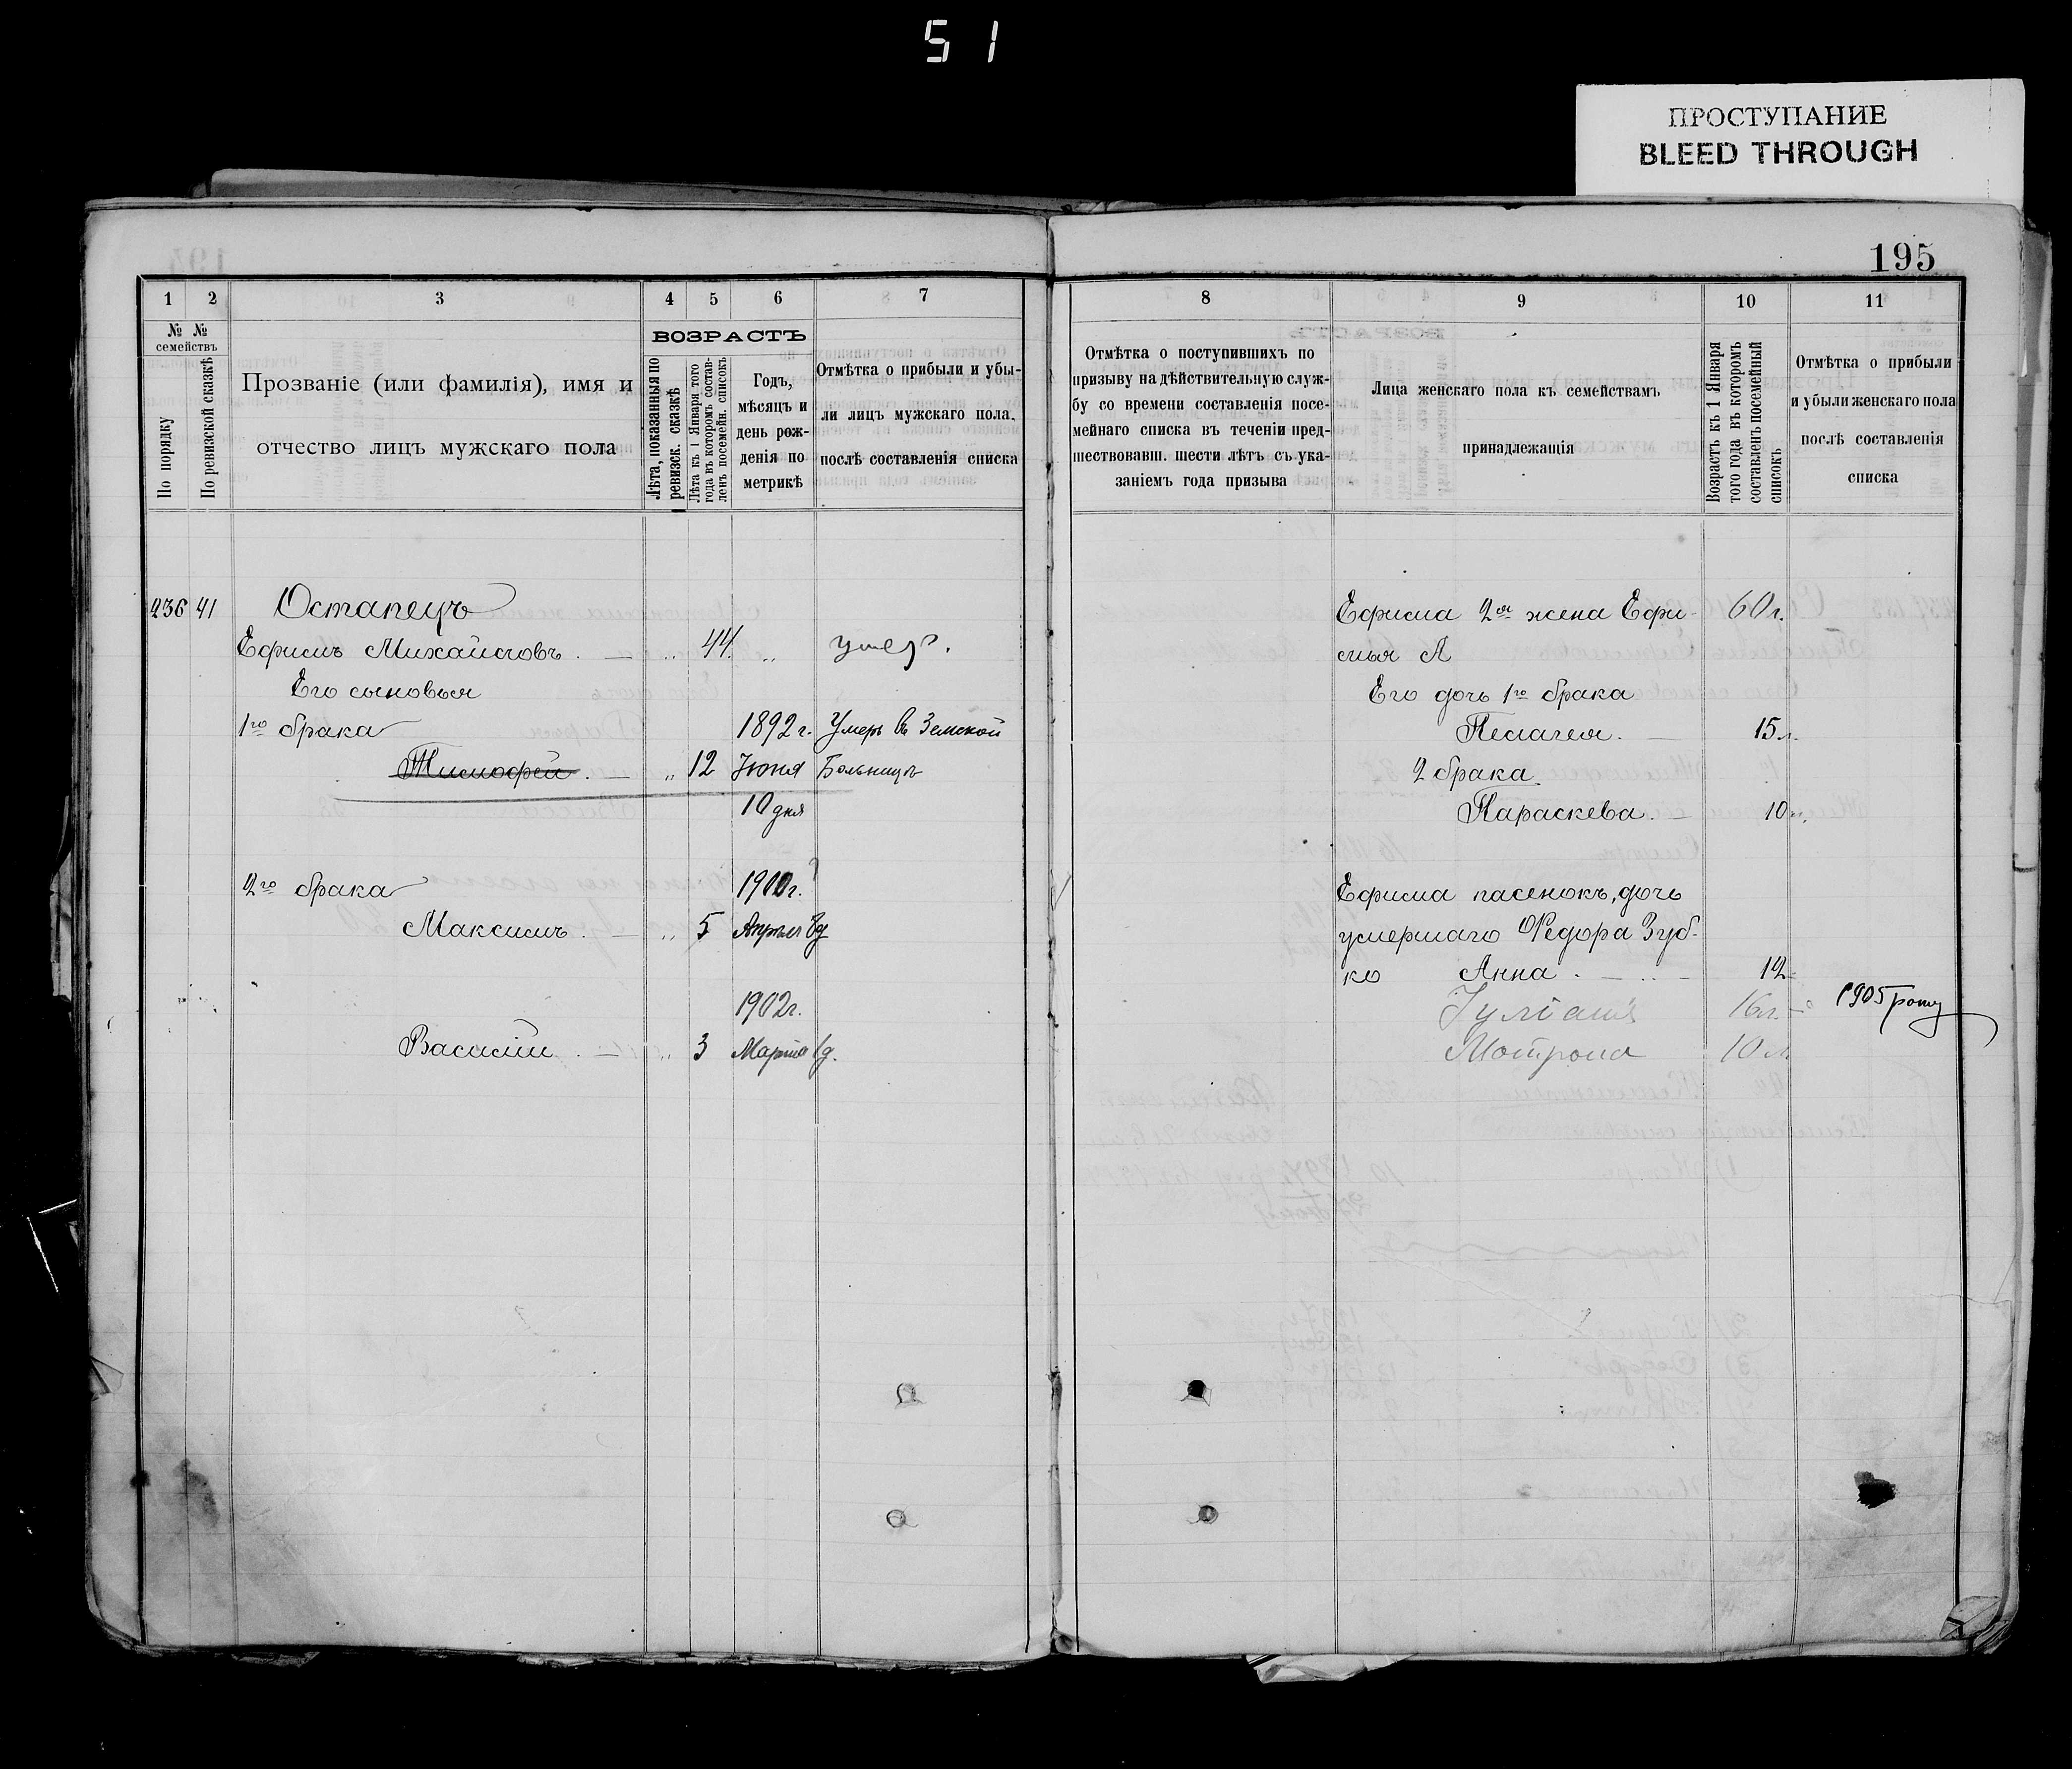 51
ПРОСТУПАНИЕ
BLEED THROUGH
195
1 2 3 4 5 6 7
№ № семействъ
По порядку
По ревизской сказкѣ
Прозваніе (или фамилія), имя и
отчество лицъ мужскаго пола
ВОЗРАСТЪ
Лѣта, показанныя по
ревизск. сказкѣ
Лѣта къ 1 Января того
года въ которомъ состав-
ленъ посемейн. списокъ
Годъ,
мѣсяцъ и
день рож-
денія по
метрикѣ
Отмѣтка о прибыли и убы-
ли лицъ мужскаго пола,
послѣ составленія списка
8 9 10 11
Отмѣтка о поступившихъ по
призыву на дѣйствительную служ-
бу со времени составленія посе-
мейнаго списка въ теченіи пред-
шествовавш. шести лѣтъ съ ука-
заніемъ года призыва
Лица женскаго пола къ семействамъ
принадлежащія
Возрастъ къ 1 Января
того года въ которомъ
составленъ посемейный
списокъ
Отмѣтка о прибыли
и убыли женскаго пола
послѣ составленія
списка
236 41 Остапецъ
Ефимъ Михайловъ . — „ 44 „ умер.
Его сыновья
1го брака 1892 г. Умеръ въ Земской
Тимофей . — „ 12 Іюня Больницѣ
10 дня
2го брака 1900 г.
Максимъ . — „ 5 Апрѣля 8д
1902 г.
Василій . — „ 3 Марта 1д.
Ефима 2я жена Ефи- 60 л.
мья
Его дочь 1го брака
Пелагея . — 15 л.
2 брака
Параскева . — 10 л.
Ефима пасенокъ, дочь
умершаго Ѳедора Зуб-
ко Анна . — 12
Іуліанія 16 л. 1905 року
Мотрона 10 л.